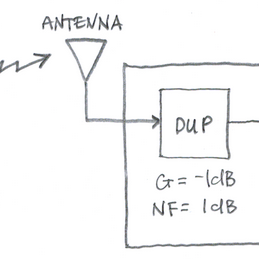 ANTENNA
DUP
G = -1dB
NF = 1dB